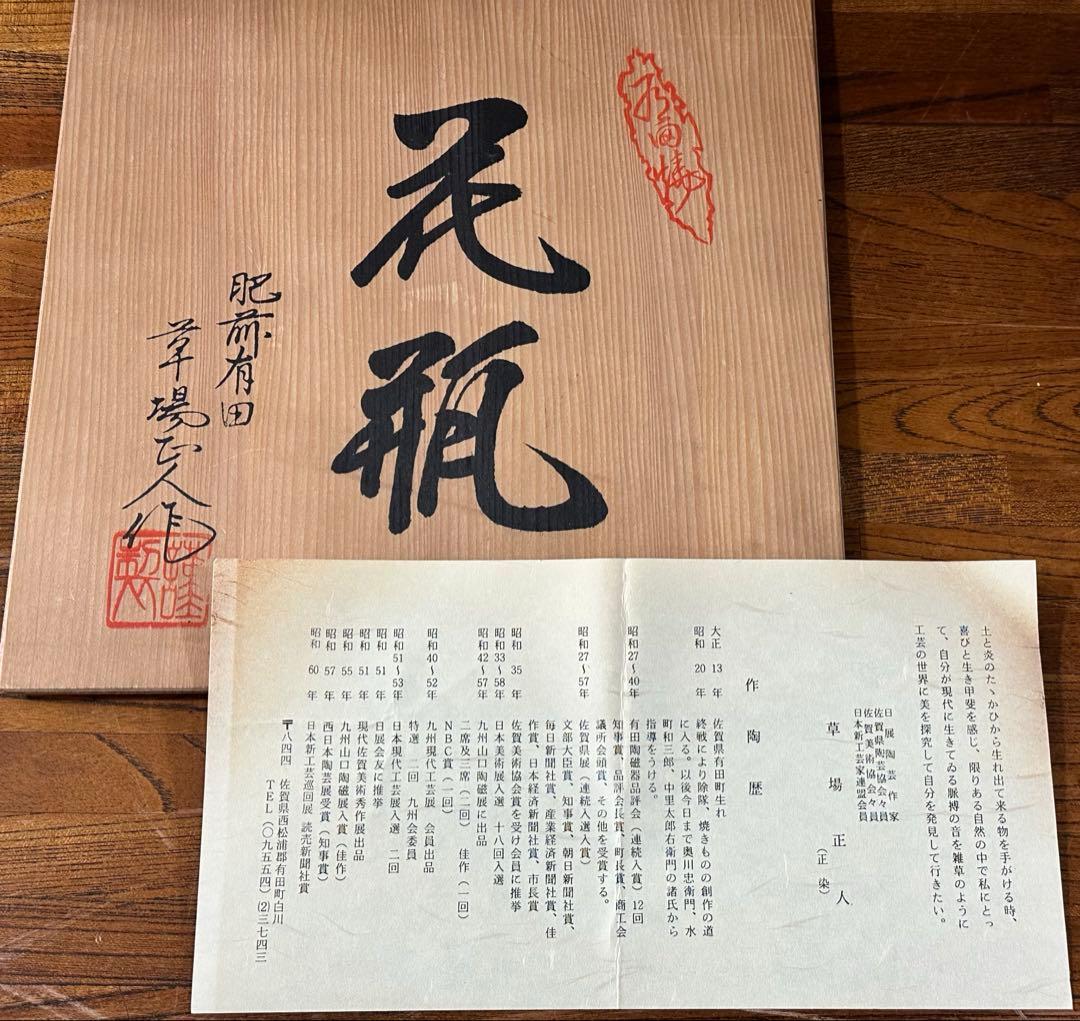 有田焼
花瓶
肥前有田
草場正人作
土と炎のたゝかひから生れ出て来る物を手がける時、
喜びと生き甲斐を感じ、限りある自然の中で私にとっ
て、自分が現代に生きてゐる脈搏の音を雑草のように
工芸の世界に美を探究して自分を発見して行きたい。
日展陶芸作家
佐賀県陶芸協会々員
佐賀美術協会々員
日本新工芸家連盟会員
草場正人
(正染)
作陶歴
大正 13 年 佐賀県有田町生れ
昭和 20 年 終戦により除隊、焼きものの創作の道
に入る。以後今日まで奥川忠衛門、水
町和三郎、中里太郎右衛門の諸氏から
指導をうける。
昭和27~40年 有田陶磁器品評会(連続入賞)12回
知事賞、品評会長賞、町長賞、商工会
議所会頭賞、その他を受賞する。
昭和27~57年 佐賀県展(連続入選入賞)
文部大臣賞、知事賞、朝日新聞社賞、
毎日新聞社賞、産業経済新聞社賞、佳
作賞、日本経済新聞社賞、市長賞
昭和 35 年 佐賀美術協会賞を受け会員に推挙
昭和33~58年 日本美術展入選 十八回入選
昭和42~57年 九州山口陶磁展に出品
二席及三席(二回) 佳作(一回)
NBC賞(一回)
昭和40~52年 九州現代工芸展 会員出品
特選 二回 九州会委員
昭和51~53年 日本現代工芸展入選 二回
昭和 51 年 日展会友に推挙
昭和 51 年 現代佐賀美術秀作展出品
昭和 55 年 九州山口陶磁展入賞(佳作)
昭和 57 年 西日本陶芸展受賞(知事賞)
昭和 60 年 日本新工芸巡回展 読売新聞社賞
〒八四四 佐賀県西松浦郡有田町白川
TEL(〇九五五四)(2)三七四三